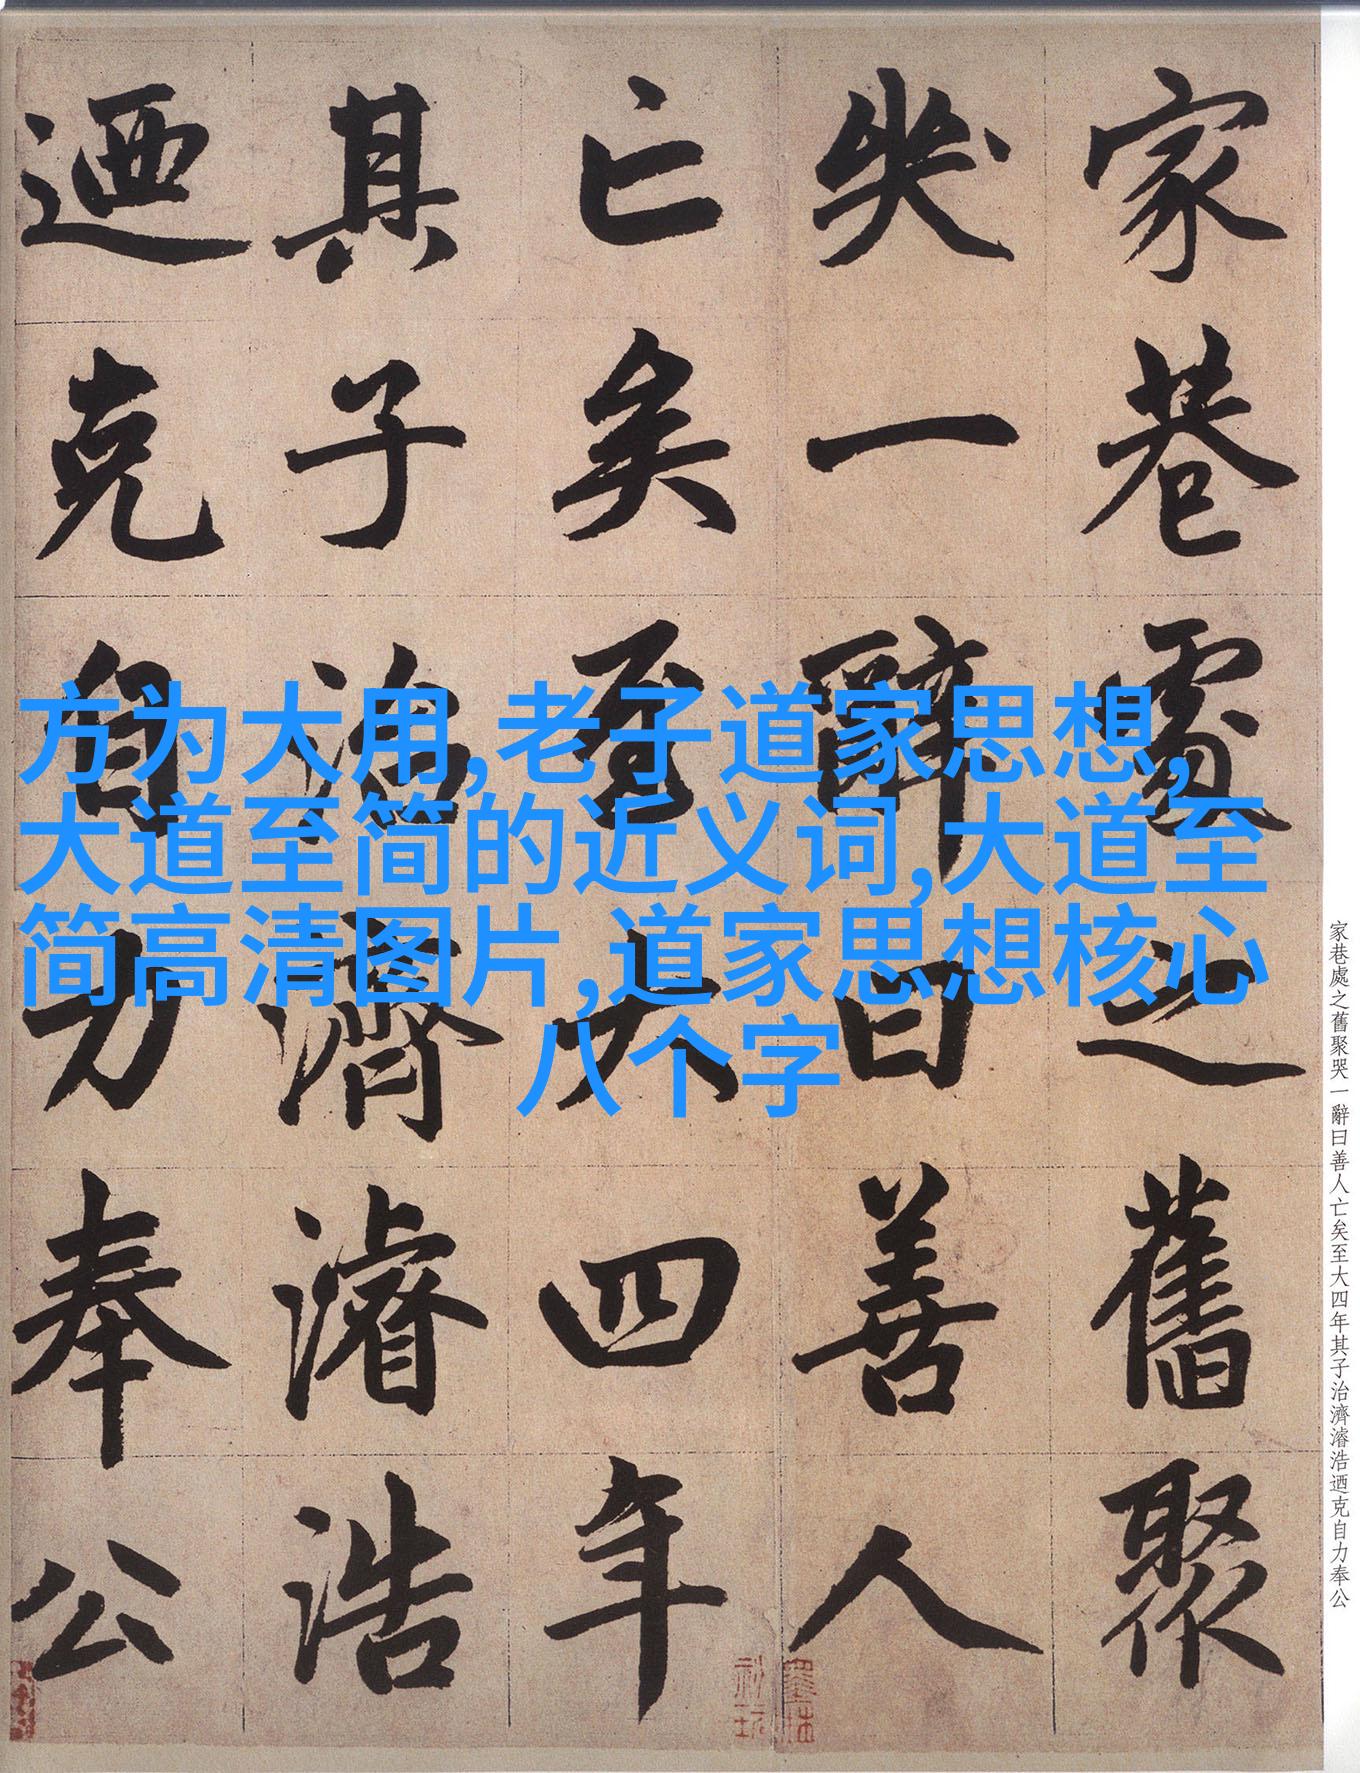 家巷處之舊聚
哭一辭曰善人
亡矣至大四年
其子治濟濬浩
迺克自力奉公
方为大用,老子道家思想,
大道至简的近义词,大道至
简高清图片,道家思想核心
八个字
家巷處之舊聚哭一辭曰善人亡矣至大四年其子治濟濬浩迺克自力奉公